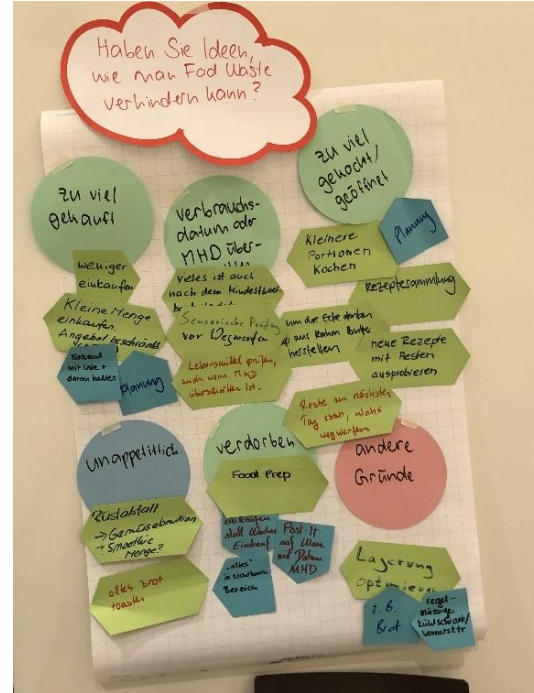 Haben Sie Ideen,
wie man Food Waste
verhindern kann?
zu viel
gekauft
weniger
einkaufen
Kleine Menge
einkaufen.
Angebot beschränkt
Einkauf
mit Liste +
daran halten
Planung
verbrauchs-
datum oder
MHD über-
Vieles ist auch
nach dem Mindesthalt-
Sensorische Prüfung
vor Wegwerfen
Lebensmittel prüfen,
auch wenn MHD
überschritten ist.
zu viel
gekocht/
geöffnet
Kleinere
Portionen
Kochen
Planung
Rezeptesammlung
um die Ecke denken
aus Rahm Butter
herstellen
neue Rezepte
mit Resten
ausprobieren
Reste am nächsten
Tag essen, nicht
wegwerfen
unappetitlich
Rüstabfall
→ Gemüsebouillon
→ Smoothie
Menge?
altes Brot
toasten
verdorben
Food Prep
einkaufen
statt Wochen
Einkauf
Post-It
auf Ware
mit Datum
MHD
"altes"
in sichtbaren
Bereich
andere
Gründe
Lagerung
optimieren
z.B.
Brot
regel-
mässig
Kühlschrank/